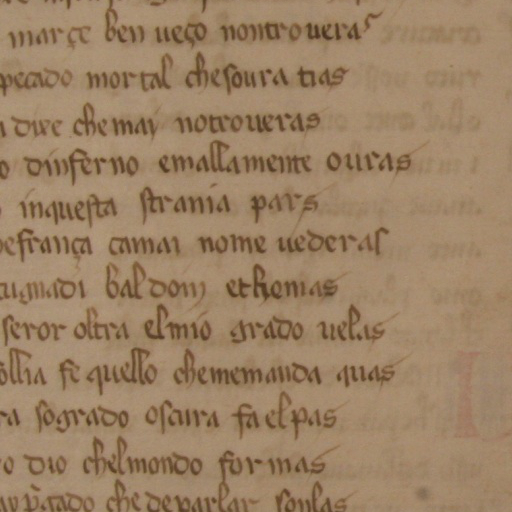 març̧e ben ueço nontroueras
pecado mortal chesoura tias
dixe chemay notroueras
dinferno emallamente ouras
inquesta strania pars
efrança camai nome uederas
cugnadi baldoin ethomas
seror oltra elmio grado uelas
ollia fe quello chememanda quas
ra sogrado oscura faelpas
o dio chelmondo formas
chedeparlar soulas